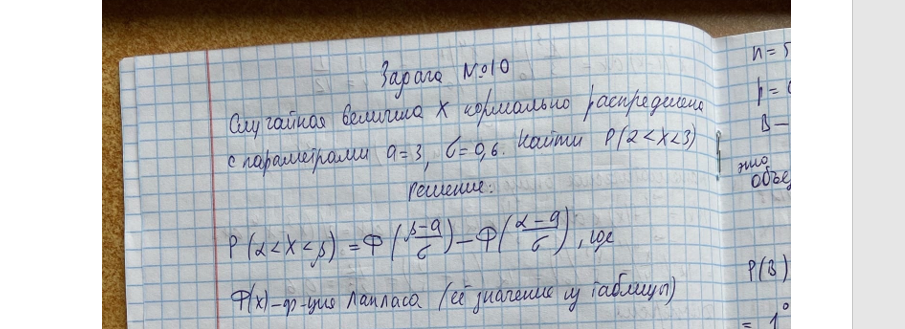 Задача №10
Случайная величина X нормально распределена
с параметрами a=3, σ=0,6. Найти P(2<X<3)
Решение:
P(α<X<β) = Φ((β-a)/σ) - Φ((α-a)/σ), где
Φ(x)-ф-ция Лапласа (её значение из таблицы)
n=5
P(B)